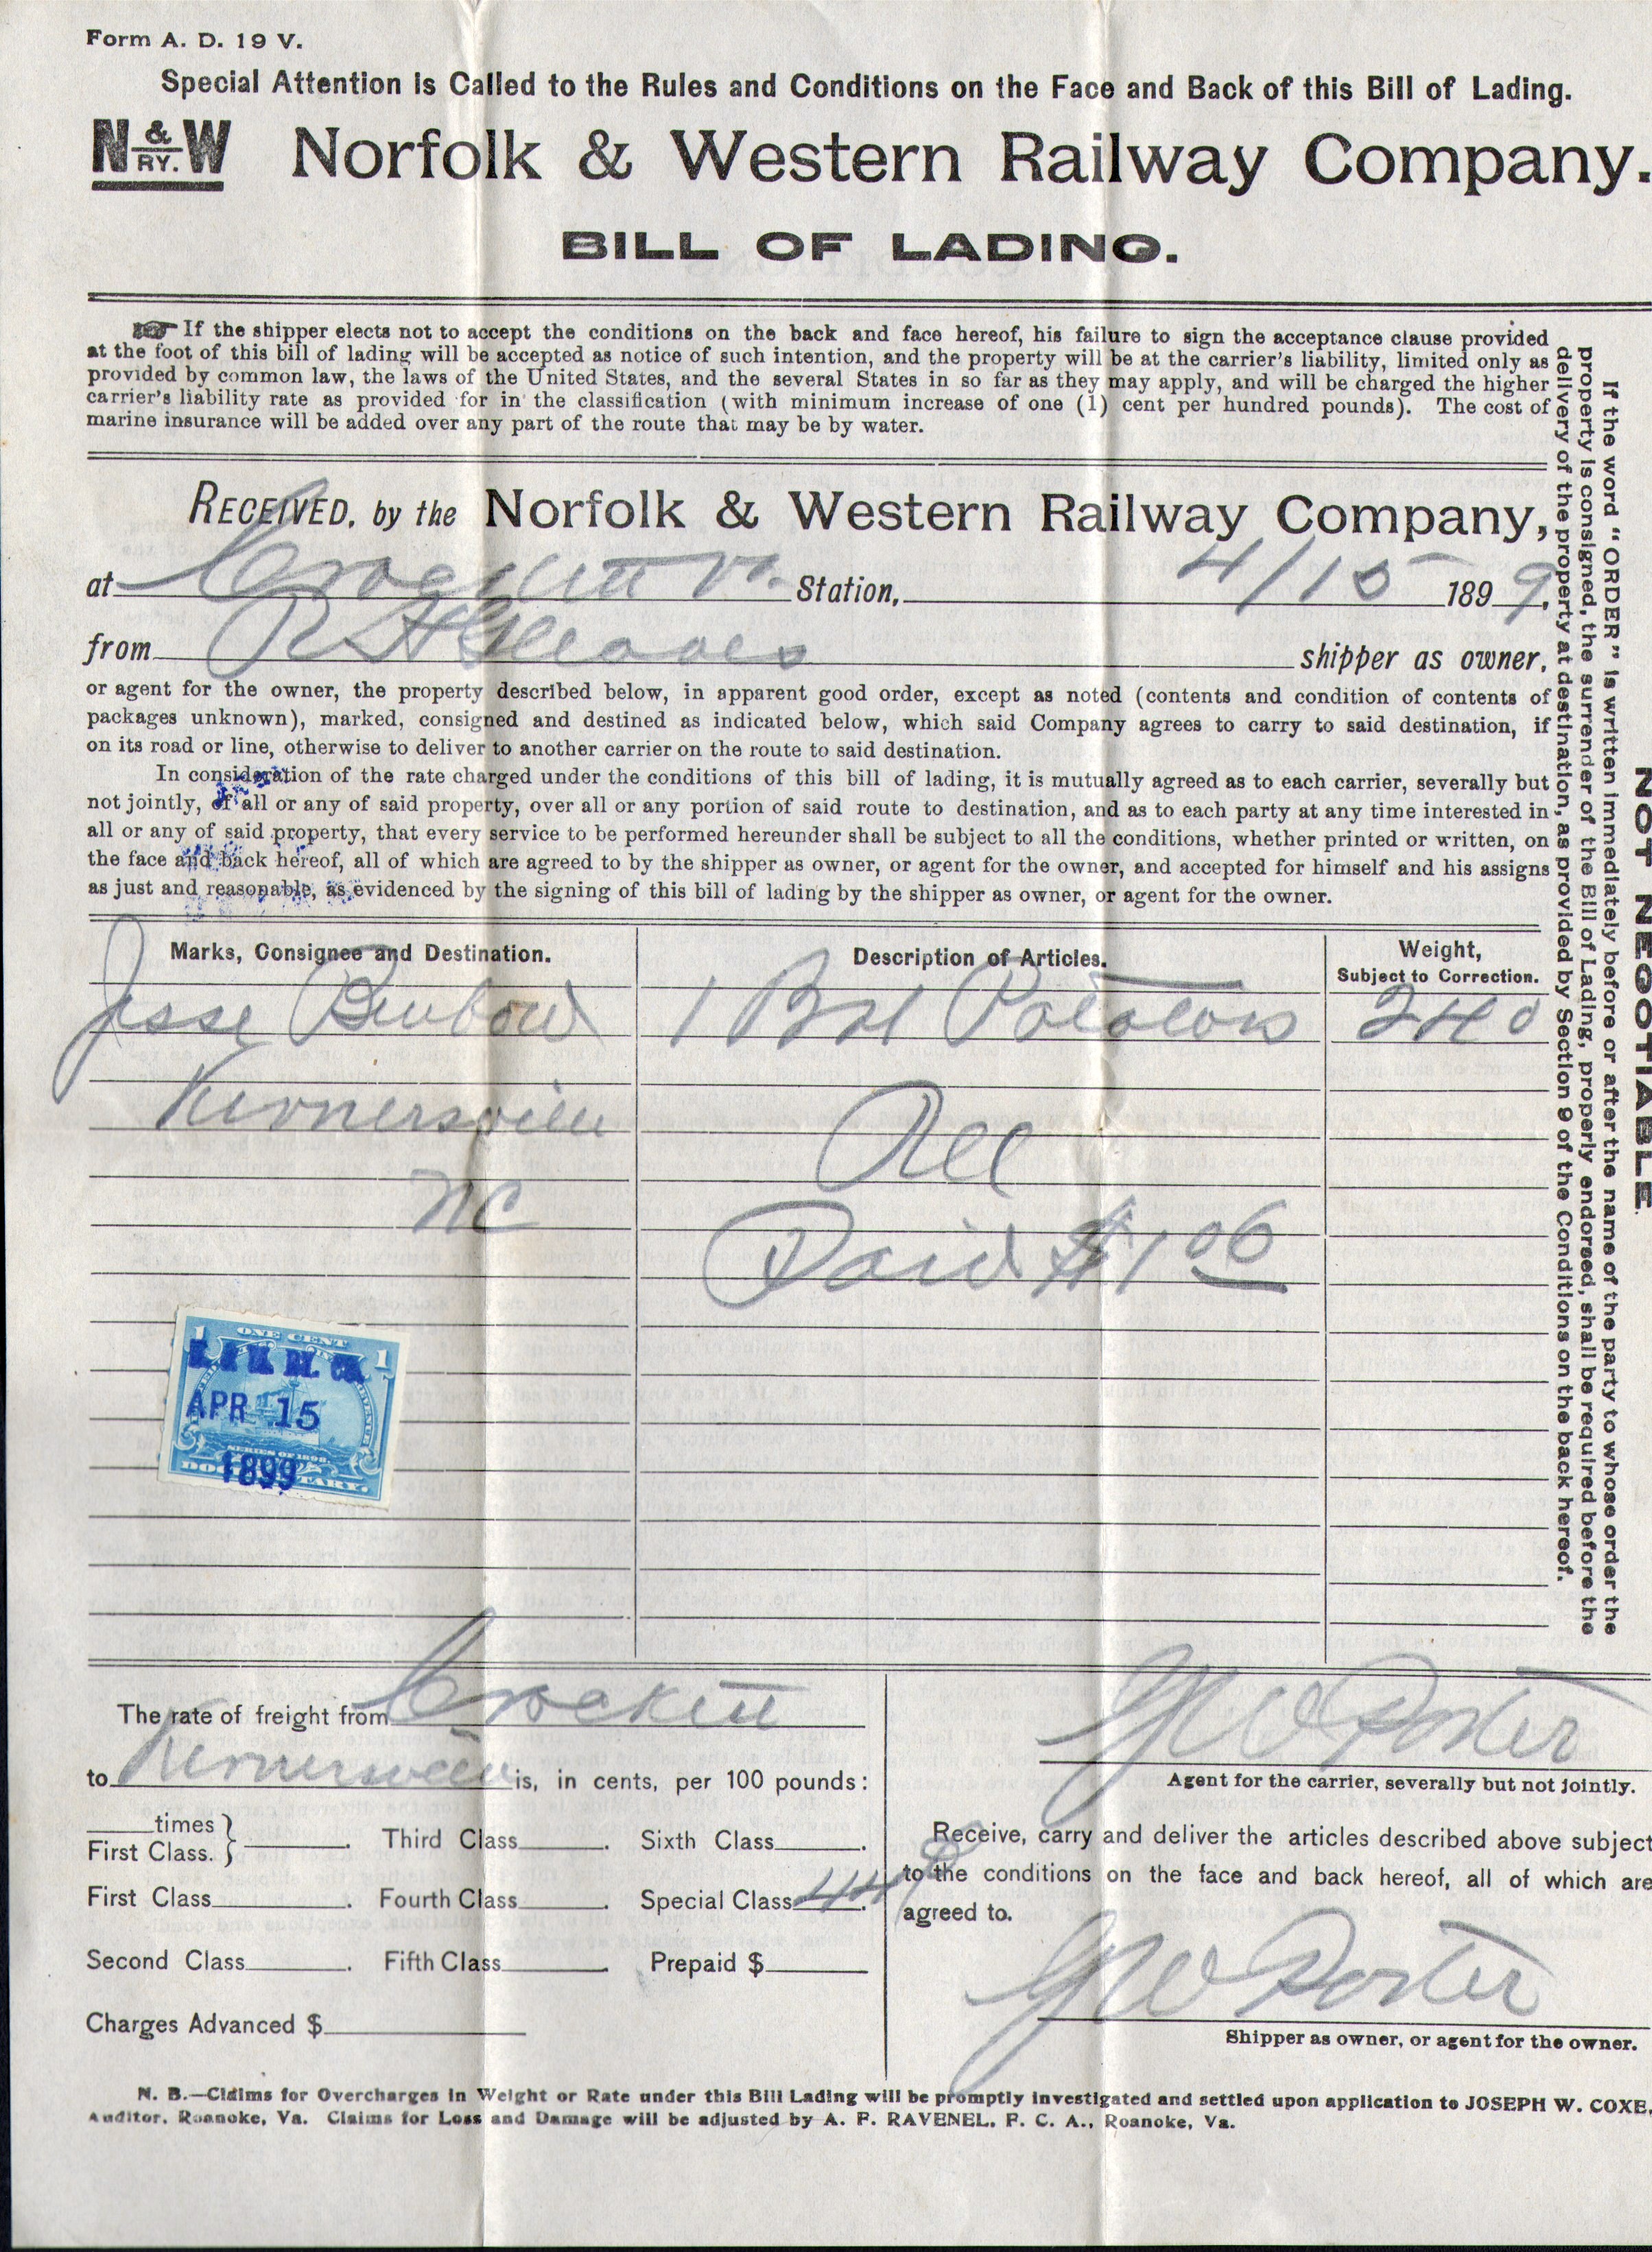 Form A. D. 19 V.
Special Attention is Called to the Rules and Conditions on the Face and Back of this Bill of Lading.
N & RY. W Norfolk & Western Railway Company.
BILL OF LADING.
☞ If the shipper elects not to accept the conditions on the back and face hereof, his failure to sign the acceptance clause provided
at the foot of this bill of lading will be accepted as notice of such intention, and the property will be at the carrier's liability, limited only as
provided by common law, the laws of the United States, and the several States in so far as they may apply, and will be charged the higher
carrier's liability rate as provided for in the classification (with minimum increase of one (1) cent per hundred pounds). The cost of
marine insurance will be added over any part of the route that may be by water.
RECEIVED, by the Norfolk & Western Railway Company,
at Crockett Va. Station, 4/15 1899,
from shipper as owner,
or agent for the owner, the property described below, in apparent good order, except as noted (contents and condition of contents of
packages unknown), marked, consigned and destined as indicated below, which said Company agrees to carry to said destination, if
on its road or line, otherwise to deliver to another carrier on the route to said destination.
In consideration of the rate charged under the conditions of this bill of lading, it is mutually agreed as to each carrier, severally but
not jointly, of all or any of said property, over all or any portion of said route to destination, and as to each party at any time interested in
all or any of said property, that every service to be performed hereunder shall be subject to all the conditions, whether printed or written, on
the face and back hereof, all of which are agreed to by the shipper as owner, or agent for the owner, and accepted for himself and his assigns
as just and reasonable, as evidenced by the signing of this bill of lading by the shipper as owner, or agent for the owner.
Marks, Consignee and Destination. Description of Articles. Weight,
Subject to Correction.
Jesse Benbow 1 Bbl Potatoes 240
Kernersville
NC
All
Paid $1 06
1 ONE CENT 1
APR 15
SERIES OF 1898
1899
DOCUMENTARY.
The rate of freight from Crockett
to Kernersville is, in cents, per 100 pounds:
times
First Class. } . Third Class . Sixth Class .
First Class . Fourth Class . Special Class 44 .
Second Class . Fifth Class . Prepaid $
Charges Advanced $
G W Porter
Agent for the carrier, severally but not jointly.
Receive, carry and deliver the articles described above subject
to the conditions on the face and back hereof, all of which are
agreed to.
G W Porter
Shipper as owner, or agent for the owner.
N. B.—Claims for Overcharges in Weight or Rate under this Bill Lading will be promptly investigated and settled upon application to JOSEPH W. COXE,
Auditor, Roanoke, Va. Claims for Loss and Damage will be adjusted by A. F. RAVENEL, F. C. A., Roanoke, Va.
If the word "ORDER" is written immediately before or after the name of the party to whose order the
property is consigned, the surrender of the Bill of Lading, properly endorsed, shall be required before the
delivery of the property at destination, as provided by Section 9 of the Conditions on the back hereof.
NOT NEGOTIABLE.